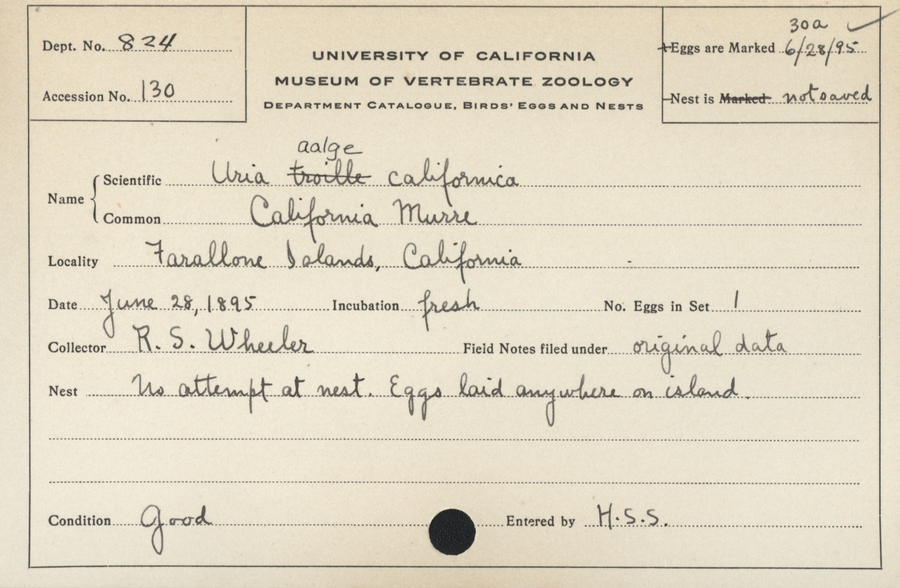 Dept. No. 824
Accession No. 130
UNIVERSITY OF CALIFORNIA
MUSEUM OF VERTEBRATE ZOOLOGY
DEPARTMENT CATALOGUE, BIRDS' EGGS AND NESTS
30a
Eggs are Marked 6/28/95
Nest is Marked not saved
aalge
Name Scientific Uria troille californica
Common California Murre
Locality Farallone Islands, California
Date June 28, 1895 Incubation fresh No. Eggs in Set 1
Collector R. S. Wheeler Field Notes filed under original data
Nest No attempt at nest. Eggs laid anywhere on island.
Condition Good Entered by H.S.S.